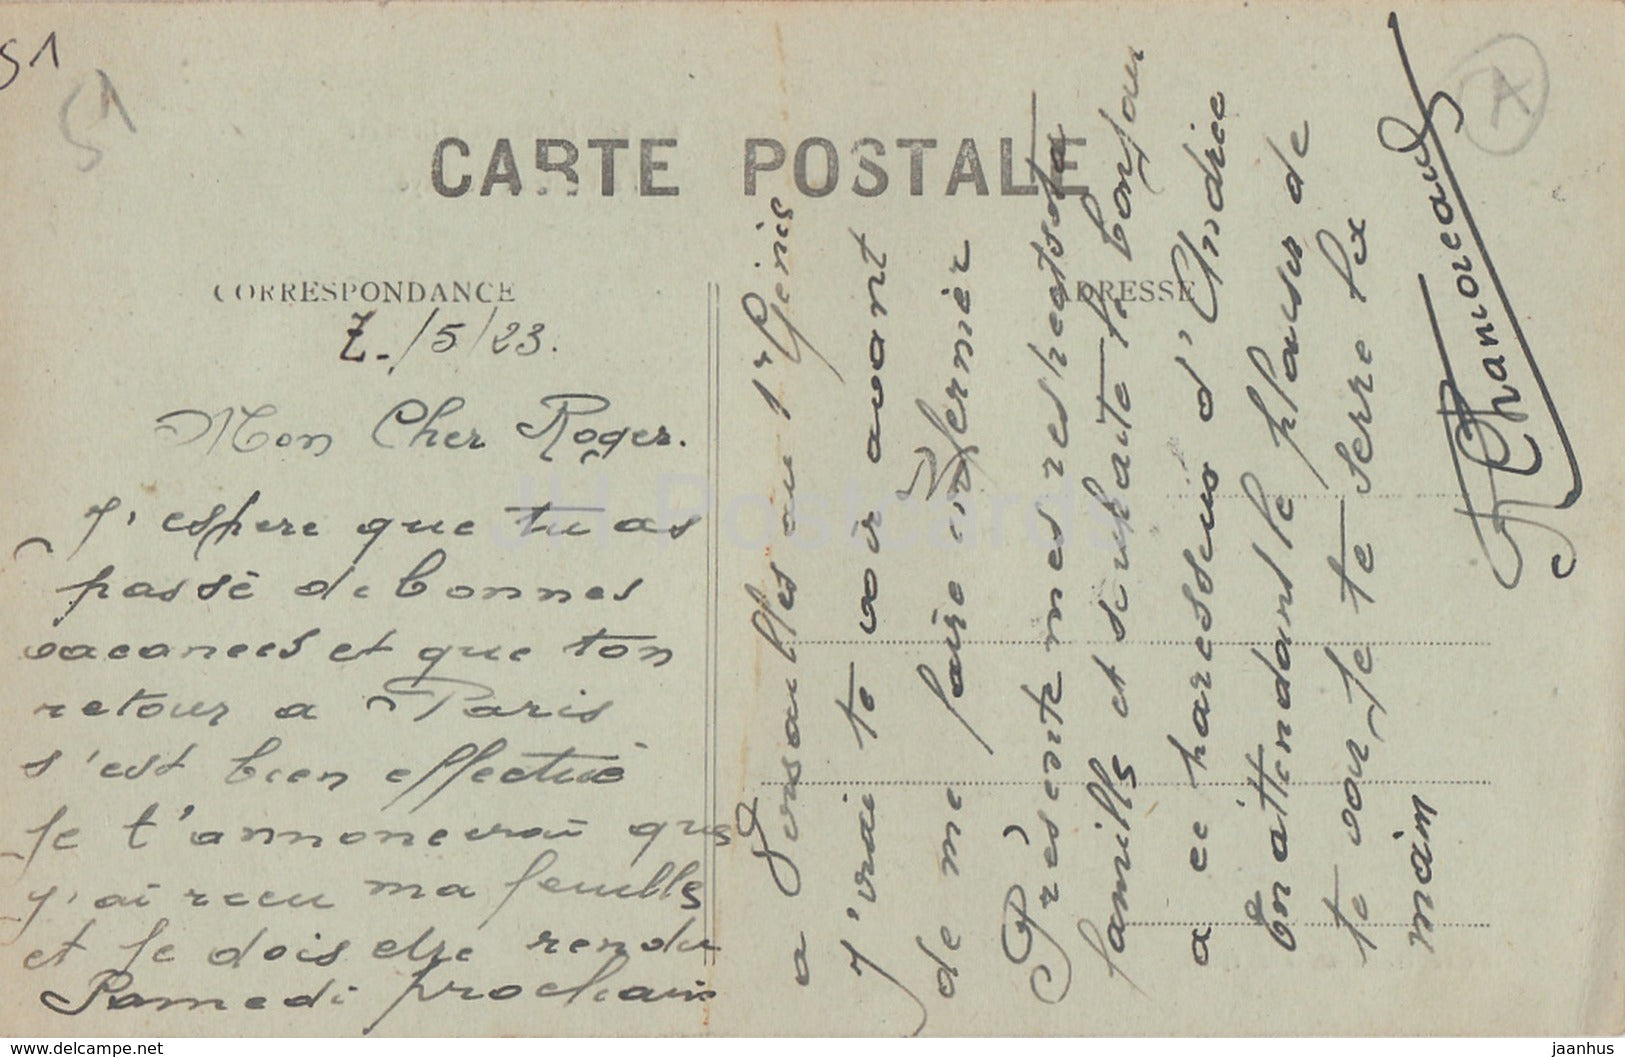 51
51
A
CARTE POSTALE
CORRESPONDANCE
ADRESSE
7./5/23.
Mon Cher Roger.
J'espere que tu as
passé de bonnes
vacances et que ton
retour a Paris
s'est bien effectué
Je t'annoncerai que
j'ai recu ma feuille
et je dois etre rendu
Samedi prochain
a Versailles au 1r Genie
J'irai te voir avant
de me faire enfermer
Présente mes respects a ta
famille et souhaite le bonjour
a ce paresseux d'Andrée
En attendant le plaisir de
te voir je te serre la
main
JH Postcards
www.delcampe.net
jaanhus